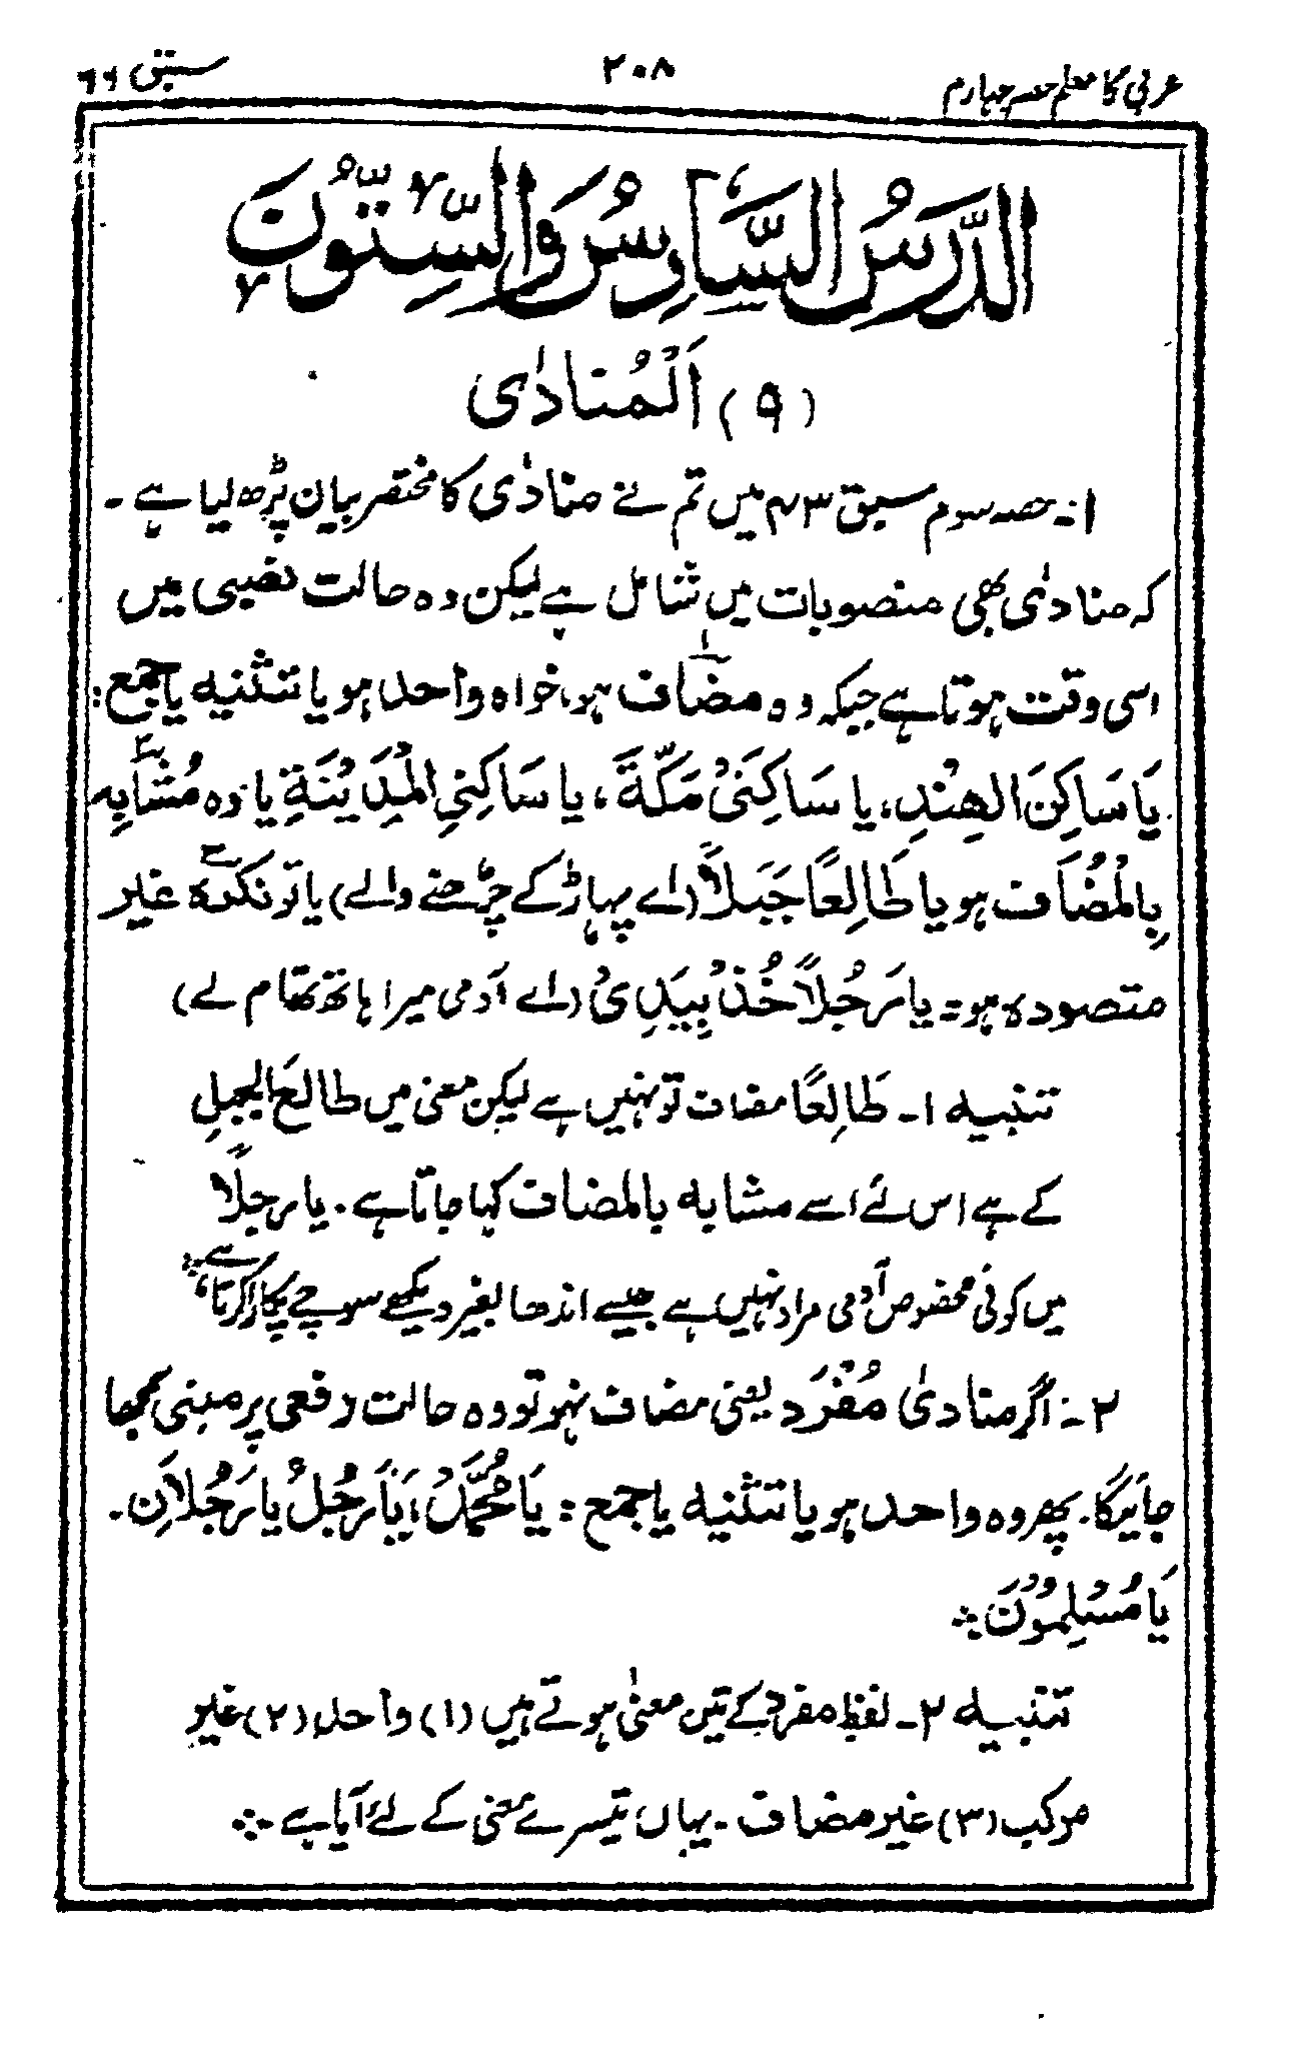 عربی کا معلم حصہ چہارم
۲۰۸
سبق ۶۶
الدَّرْسُ السَّادِسُ وَالسِّتُّونَ
(۹) اَلْمُنَادٰی
۱۔ حصہ سوم سبق ۴۳ میں تم نے منادٰی کا مختصر بیان پڑھ لیا ہے ۔
کہ منادٰی بھی منصوبات میں شامل ہے لیکن وہ حالت نصبی میں
اسی وقت ہوتا ہے جبکہ وہ مضاف ہو، خواہ واحد ہو یا تثنیہ یا جمع:
یَا سَاکِنَ الھِنْدِ، یا سَاکِنَیْ مَکَّةَ، یا سَاکِنِی الْمَدِیْنَةِ یا وہ مُشَابِہ
بِالْمُضَاف ہو یا طَالِعًا جَبَلاً (اے پہاڑ کے چڑھنے والے) یا تو نکرہ غیر
مقصودہ ہو: یا رَجُلاً خُذْ بِیَدِیْ (اے آدمی میرا ہاتھ تھام لے)
تنبیہ ۱۔ طَالِعًا مضاف تو نہیں ہے لیکن معنی میں طالعَ الجبلِ
کے ہے اس لئے اسے مشابہ بالمضاف کہا جاتا ہے. یا رجلًا
میں کوئی مخصوص آدمی مراد نہیں ہے جیسے اندھا بغیر دیکھے سوچے پکارا کرتا ہے
۲۔ اگر منادیٰ مُفْرَد یعنی مضاف نہو تو وہ حالت رفعی پر مبنی سمجھا
جائیگا. پھر وہ واحد ہو یا تثنیہ یا جمع : یَا مُحَمَّدُ، یَا رَجُلُ یا رَجُلَانِ۔
یَا مُسْلِمُوْنَ
تنبیہ ۲۔ لفظ مفرد کے تین معنٰی ہوتے ہیں (۱) واحد (۲) غیر
مرکب (۳) غیر مضاف ۔ یہاں تیسرے معنی کے لئے آیا ہے